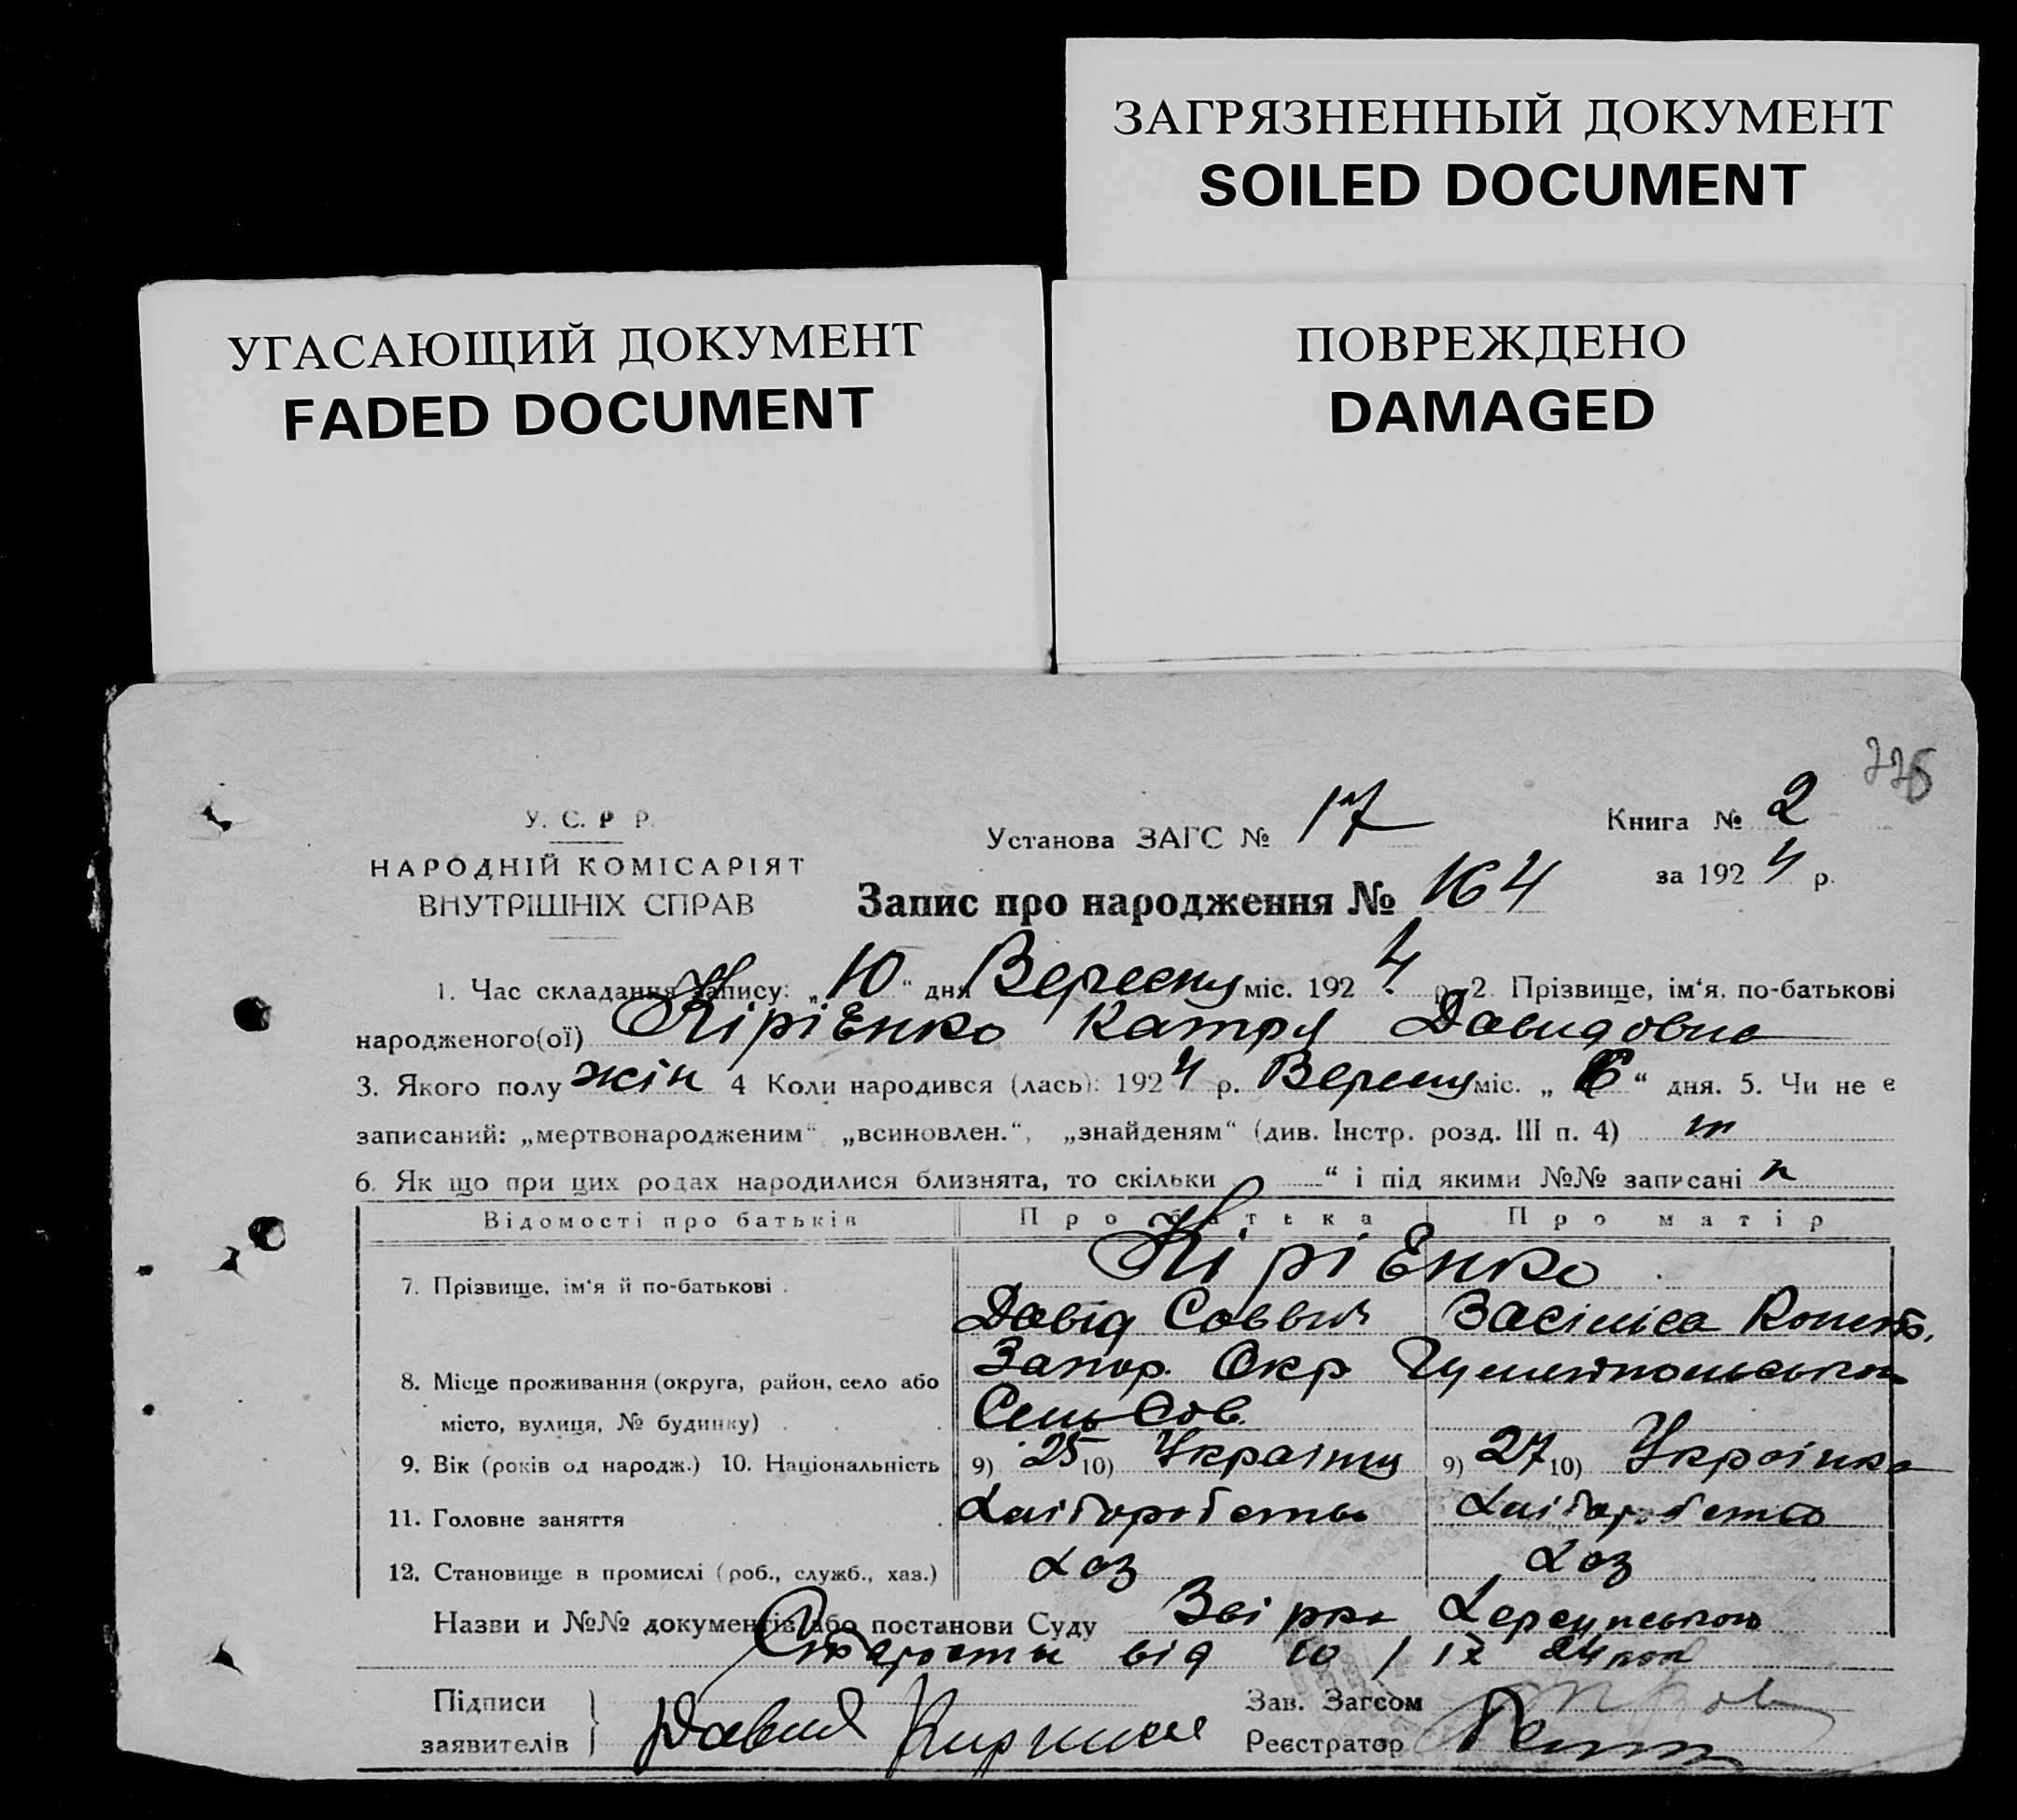 ЗАГРЯЗНЕННЫЙ ДОКУМЕНТ
SOILED DOCUMENT
УГАСАЮЩИЙ ДОКУМЕНТ
FADED DOCUMENT
ПОВРЕЖДЕНО
DAMAGED
У. С. Р Р.
НАРОДНІЙ КОМІСАРІЯТ
ВНУТРІШНІХ СПРАВ
Установа ЗАГС № 17
Книга № 2
за 1924 р.
Запис про народження № 164
1. Час складання запису: „10“ дня Вересня міс. 1924 р. 2. Прізвище, ім‘я, по-батькові
народженого(ої) Кірієнко Катря Давидовна
3. Якого полу жін 4 Коли народився (лась): 1924 р. Вересня міс. „6“ дня. 5. Чи не є
записаний: „мертвонародженим“ „всиновлен.“, „знайденям“ (див. Інстр. розд. III п. 4)
6. Як що при цих родах народилися близнята, то скільки “ і під якими №№ записані
Відомості про батьків Про батька Про матір
7. Прізвище, ім‘я й по-батькові . Кірієнко
Давід Саввич Васіліса
8. Місце проживання (округа, район, село або Запор. Окр
місто, вулиця, № будинку) Сель Сов.
9. Вік (років од народж.) 10. Національність 9) 25 10) Українець 9) 27 10) Українка
11. Головне заняття Хліборобство Хліборобство
12. Становище в промислі (роб., служб., хаз.) Хаз Хаз
Назви и №№ документів або постанови Суду
від 10 / ІХ 24
Підписи
заявителів Давид
Зав. Загсом
Реєстратор